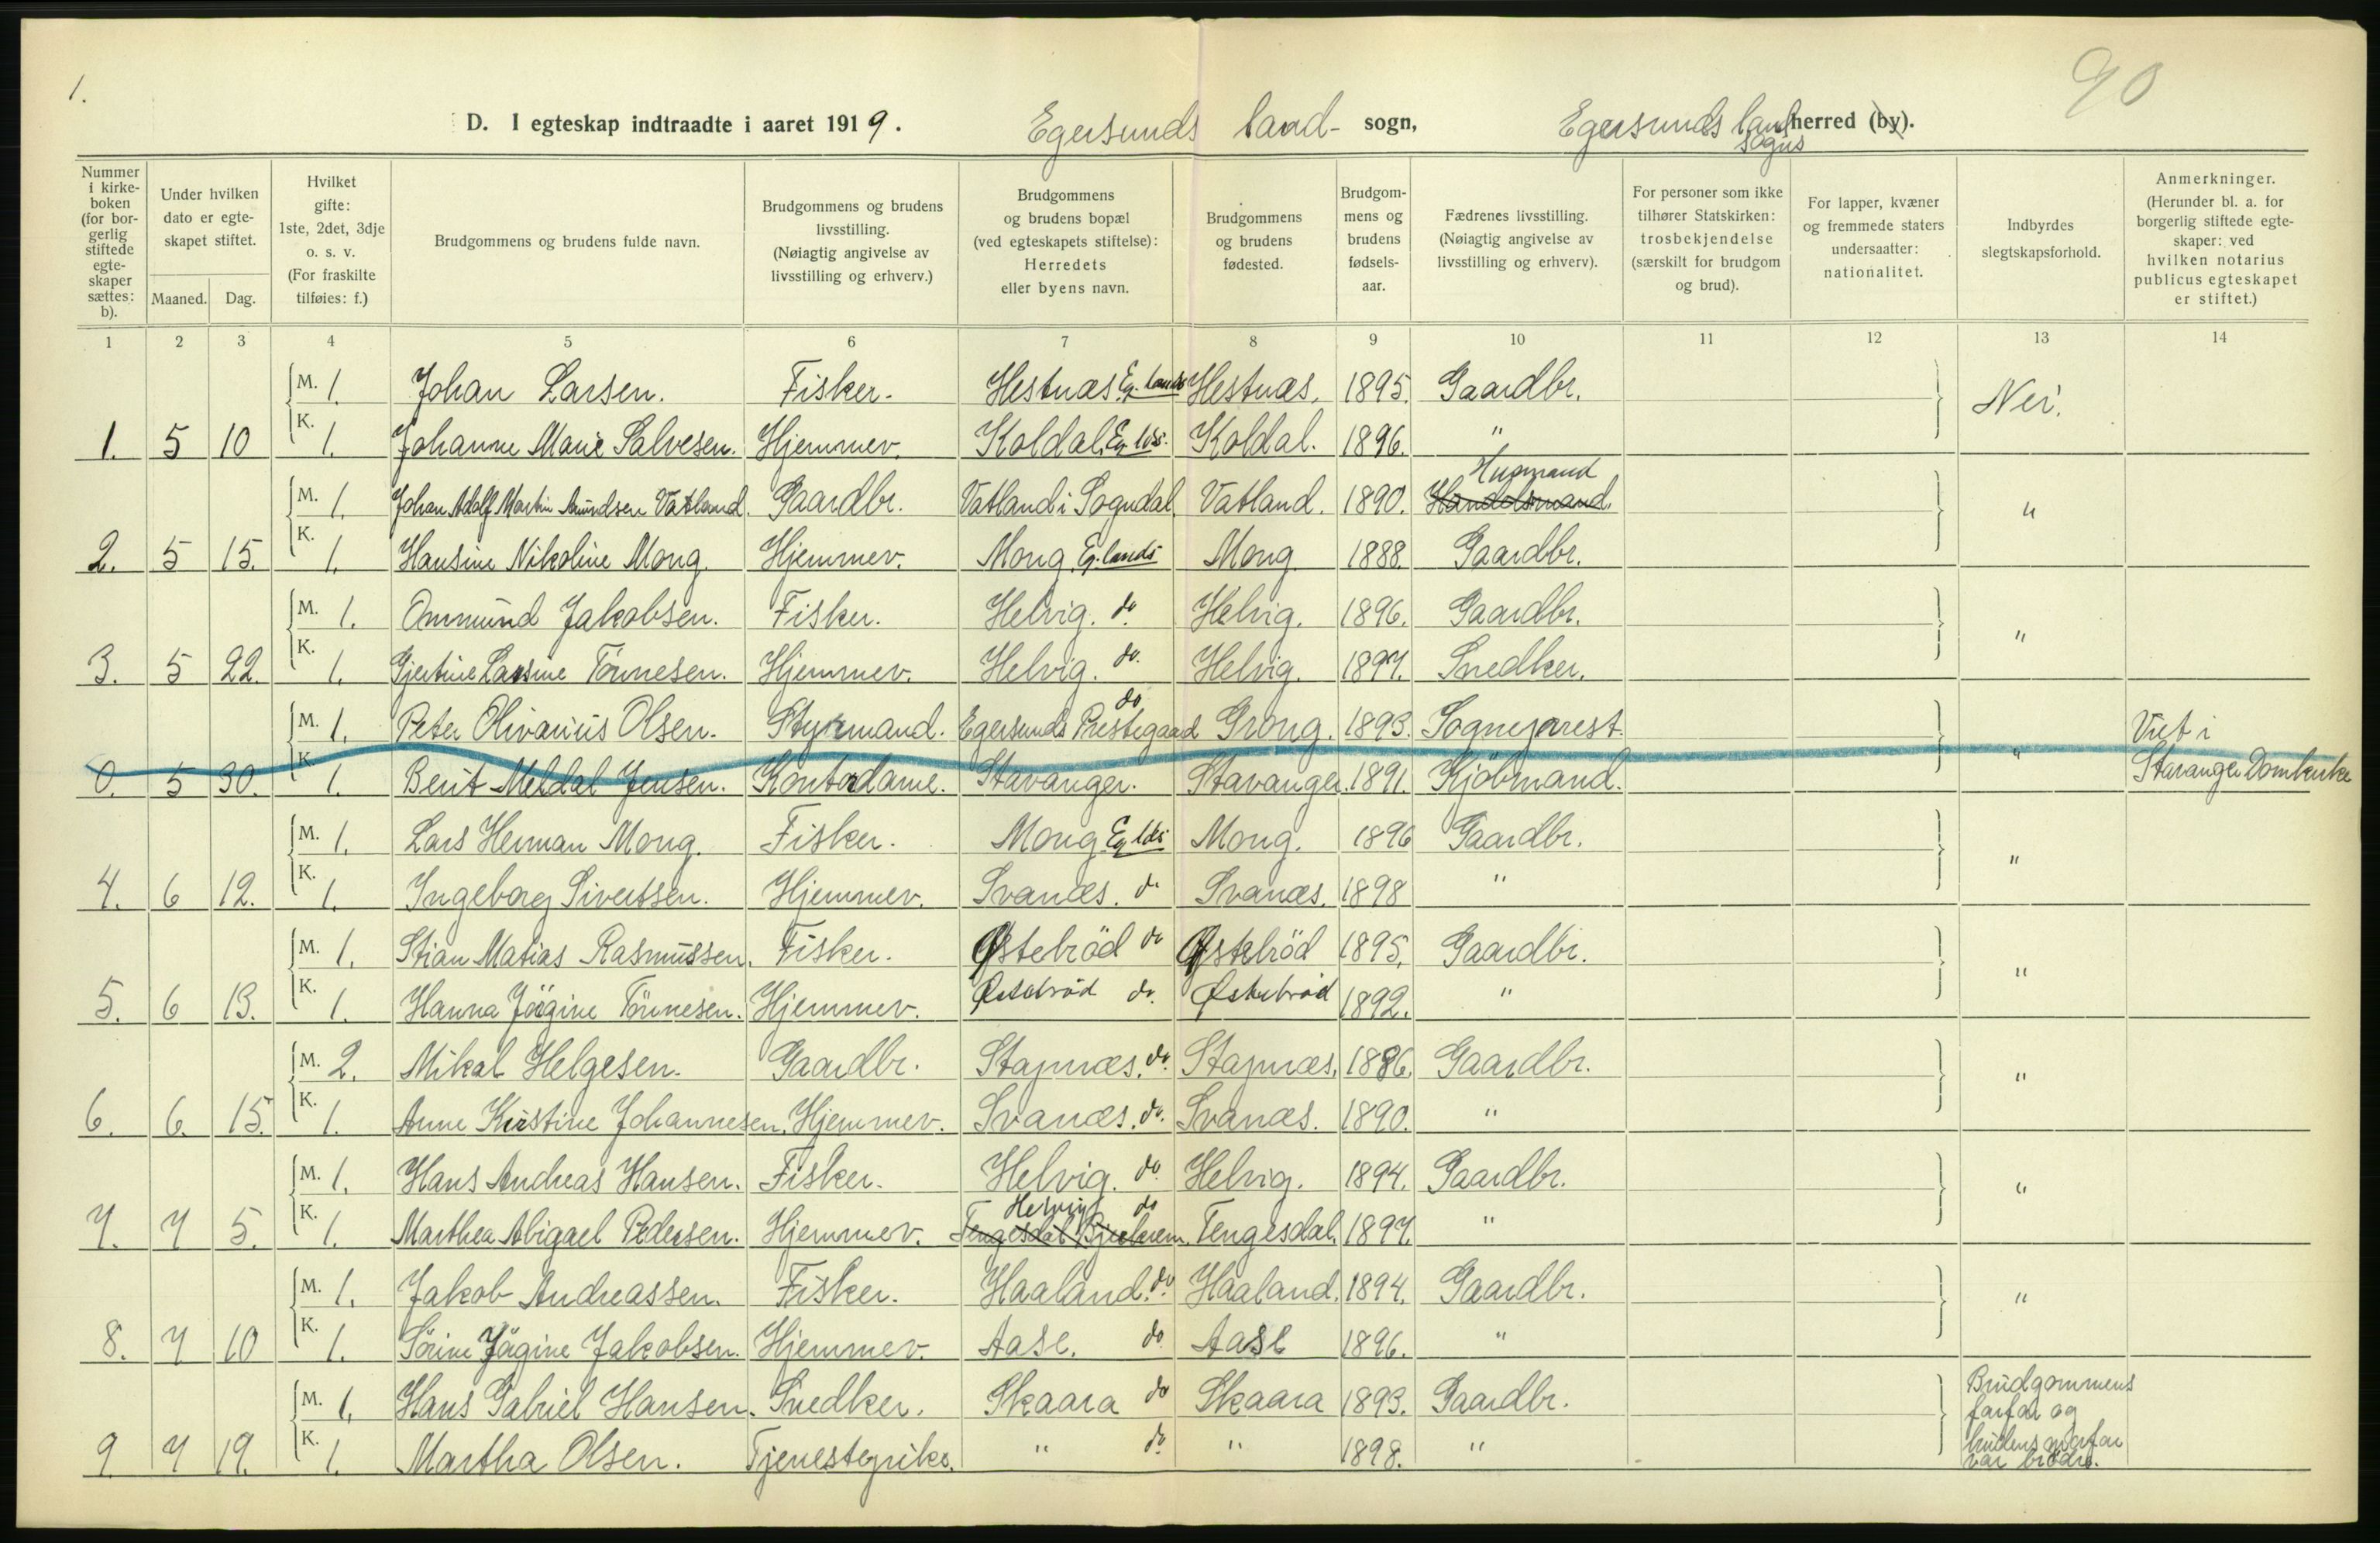 1.
90
D. I egteskap indtraadte i aaret 1919. Egersunds land- sogn, Egersunds landsogns herred (by).
Nummer i kirkeboken (for borgerlig stiftede egteskaper sættes: b).
Under hvilken dato er egteskapet stiftet.
Maaned. Dag.
Hvilket gifte: 1ste, 2det, 3dje o. s. v. (For fraskilte tilføies: f.)
Brudgommens og brudens fulde navn.
Brudgommens og brudens livsstilling. (Nøiagtig angivelse av livsstilling og erhverv.)
Brudgommens og brudens bopæl (ved egteskapets stiftelse): Herredets eller byens navn.
Brudgommens og brudens fødested.
Brudgommens og brudens fødselsaar.
Fædrenes livsstilling. (Nøiagtig angivelse av livsstilling og erhverv).
For personer som ikke tilhører Statskirken: trosbekjendelse (særskilt for brudgom og brud).
For lapper, kvæner og fremmede staters undersaatter: nationalitet.
Indbyrdes slegtskapsforhold.
Anmerkninger. (Herunder bl. a. for borgerlig stiftede egteskaper: ved hvilken notarius publicus egteskapet er stiftet.)
1 2 3 4 5 6 7 8 9 10 11 12 13 14
M. 1. Johan Larsen. Fisker. Hestnæs Eg. lands Hestnæs. 1895. Gaardbr. Nei.
1. 5 10 K. 1. Johanne Marie Salvesen. Hjemmev. Koldal. Eg. lds. Koldal. 1896. "
M. 1. Johan Adolf Martin Amundsen Vatland. Gaardbr. Vatland i Sogndal. Vatland. 1890. Handelsmand. Husmand "
2. 5 15. K. 1. Hansine Nikoline Mong. Hjemmev. Mong Eg. lands Mong 1888. Gaardbr.
M. 1. Ommund Jakobsen. Fisker. Helvig. do. Helvig. 1896. Gaardbr. "
3. 5 22. K. 1. Gjertine Larsine Tönnesen. Hjemmev. Helvig. do. Helvig. 1897. Snedker.
M. 1. Peter Olivarius Olsen. Styrmand. Egersunds Prestegaard do Grong. 1893. Sogneprest. Viet i
0. 5 30. K. 1. Berit Meldal Jensen. Kontordame. Stavanger. Stavanger. 1891. Kjöbmand. " Stavanger Domkirke
M. 1. Lars Herman Mong. Fisker. Mong Eg lds Mong. 1896 Gaardbr. "
4. 6 12. K. 1. Ingeborg Sivertsen. Hjemmev. Svanæs. do Svanæs. 1898 "
M. 1. Stian Matias Rasmussen. Fisker. Østebröd do Østebröd 1895. Gaardbr. "
5. 6 13. K. 1. Hanna Jögine Tönnesen. Hjemmev. Østebröd do. Østebröd 1892. "
M. 2. Mikal Helgesen. Gaardbr. Stapnæs. do. Stapnæs. 1886. Gaardbr. "
6. 6. 15. K. 1. Anne Kristine Johannesen. Hjemmev. Svanæs. do. Svanæs. 1890. "
M. 1. Hans Andreas Hansen. Fisker. Helvig. do Helvig. 1894. Gaardbr. "
7. 7 5. K. 1. Marthea Abigael Pedersen. Hjemmev. Tengesdal Bjerkrem. Helvig do Tengesdal. 1897. "
M. 1. Jakob Andreassen. Fisker. Haaland. do. Haaland. 1894. Gaardbr. "
8. 7 10 K. 1. Sörine Jögine Jakobsen. Hjemmev. Aase. do Aase 1896. "
M. 1. Hans Gabriel Hansen. Snedker. Skaara do Skaara 1893. Gaardbr. Brudgommens farfar og
9. 7 19. K. 1. Martha Olsen. Tjenestepike. " do. " 1898. " brudens morfar var brödre.